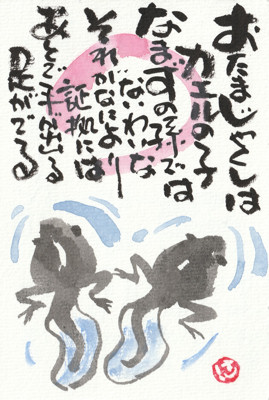 おたまじゃくしは
カエルの子
なまずの孫では
ないわいな
それがなにより
証拠には
あとで手が出る
足がでる